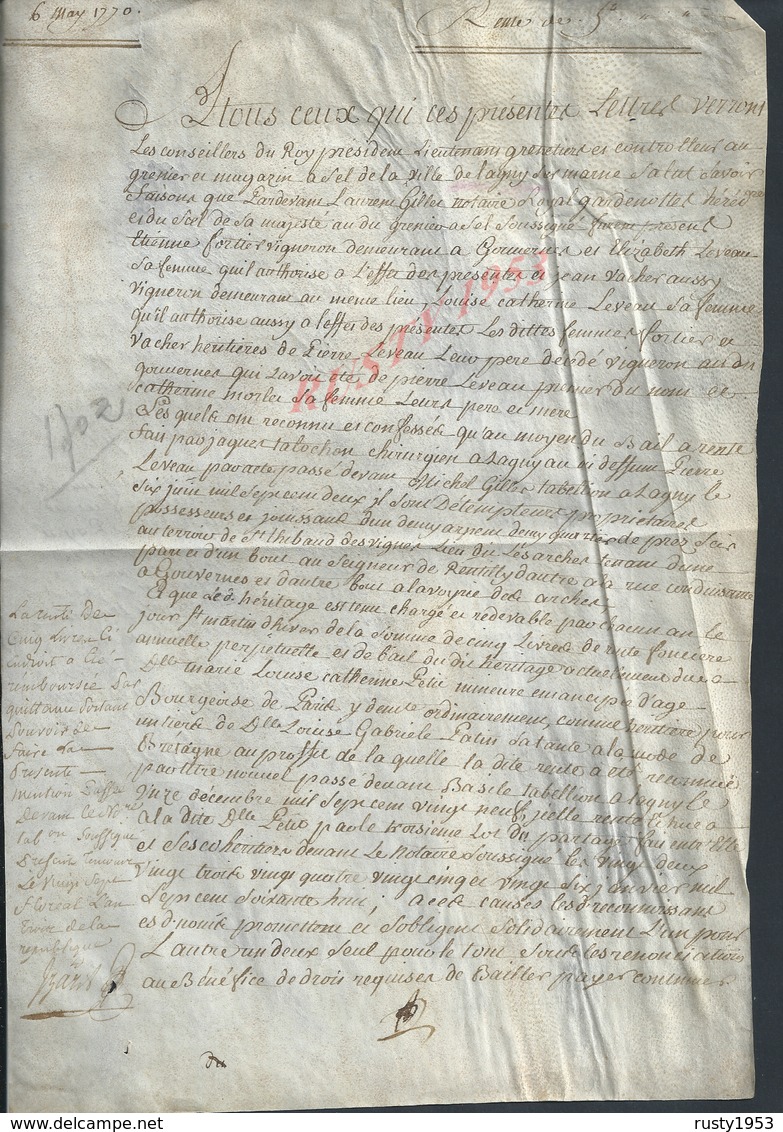 6 May 1770.
Rente de 5lt
A tous ceux qui ces presentes Lettres verront
Les conseillers du Roy president Lieutenant grenetier et controlleur au
grenier et magazin a sel de la ville de lagny sur marne salut savoir
faisons que Pardevant Laurent Gilles notaire Royal gardenottes héréd
et du Scel de sa majesté au du grenier a sel soussigné furent present
Etienne fortier vigneron demeurant a Gouvernes et Elizabeth Leveau
sa femme quil authorise a L'effet des presentes et jean vacher aussy
vigneron demeurant au meme lieu, Louise catherine Leveau sa femme
qu'il authorise aussy a l'effet des presentes Les dittes femmes fortier et
vacher heritieres de Pierre Leveau Leur pere décédé vigneron au du
gouvernes qui lavoit été de pierre Leveau premier du nom et
catherine morlet sa femme Leurs pere et mere
Les quels ont reconnu et confessé qu'au moyen du Bail a rente
fait par jaques talochon chirurgien a Lagny au di deffunt Pierre
Leveau par acte passé devant Michel Gilles tabellion a Lagny le
six juin mil sept cent deux il sont Détempteurs proprietaires
possesseurs et jouissant d'un demy arpent demy quartier de prez scis
au terroir de St thibaud des vignes Lieu dit Les arches tenant d'une
part et d'un bout au seigneur de Rentilly d'autre a la rue conduisante
a Gouvernes et d'autre bout a la voyrie des arches,
Et que Led. héritage est tenu chargé et redevable par chacun an le
jour St martin d'hiver de la somme de cinq Livres de rente fonciere
annuelle perpetuelle et de bail du dit héritage actuellement due a
Dlle marie Louise catherine Petit mineure emancipée d'age
Bourgeoise de Paris y demte ordinairement, comme heritiere pour
un tiers de Dlle Louise Gabriele Patin sa tante a la mode de
Bretagne au proffit de la quelle la dite rente a été reconnue
par titre nouvel passé devant Basile tabellion a Lagny le
onze décembre mil sept cent vingt neuf, jcelle rente échue a
a la dite Dlle Petit par le troisieme Lot du partage fait entr'Elle
et ses coheritiers devant Le Notaire soussigné les vingt deux
vingt trois vingt quatre vingt cinq et vingt six janvier mil
sept cent soixante huit; a ces causes les d. reconnoissans
es d. noms promettent et s'obligent solidairement L'un pour
L'autre un deux seul pour le tout sous les renonciations
au Bénéfice de droit requises de Bailler payer continuer
1702
La rente de
Cinq Livres Ci
endroit a été
remboursée par
quittance portant
pouvoir de
faire La
Presente
mention passé
devant le Nore
tab on soussigné
Le vingt sept
floréal L'an
trois de la
republique
du
RUSTY 1953
www.delcampe.net
rusty1953